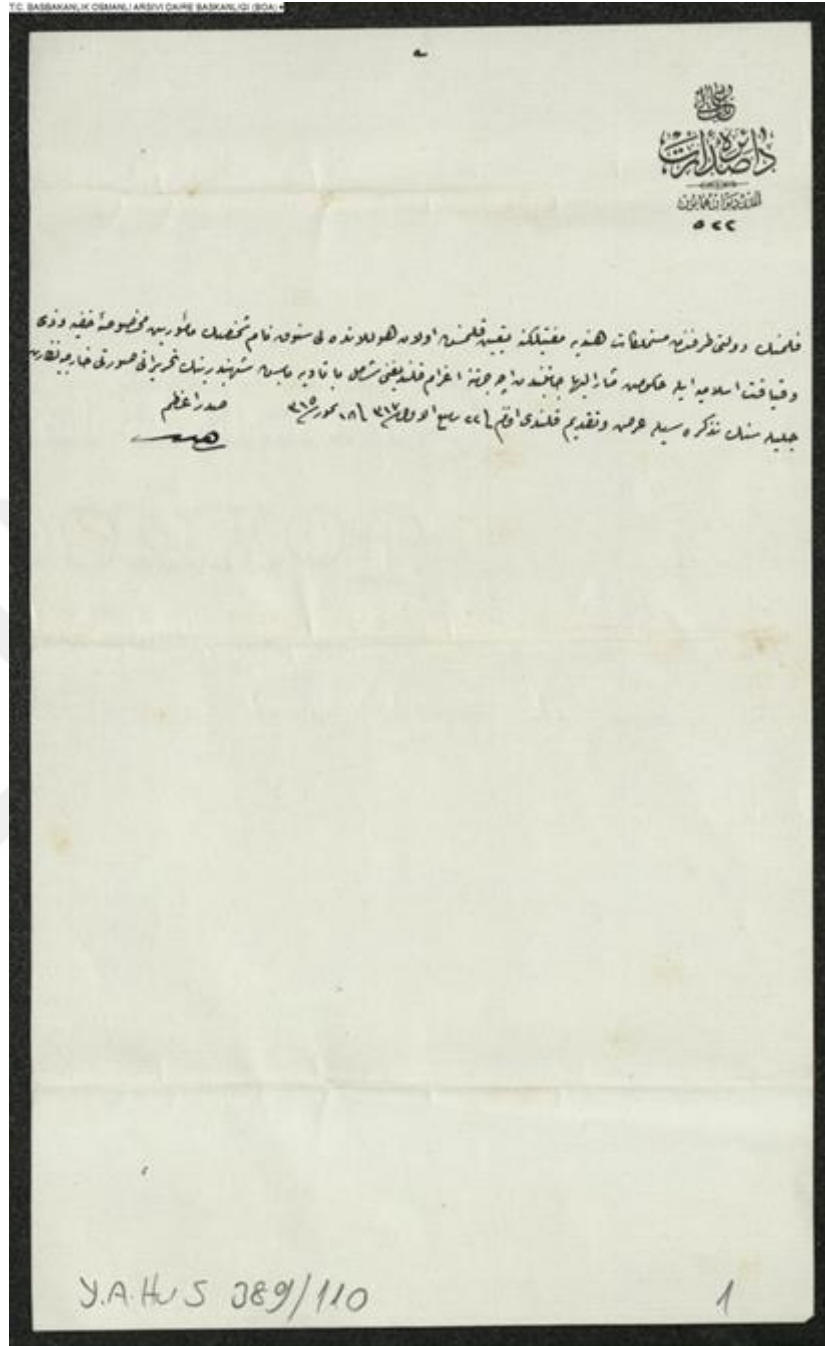 T.C. BASBAKANLIK OSMANLI ARSIVI DAIRE BASKANLIGI (BOA)
باب عالی
دائره صدارت
آمدی دیوان همایون
٥٢٢
فلمنك دولتی طرفندن مستملكات هندیه مفتیلكنه تعیین قلنمش اولان هوللانده لی سنوق نام شخصك مأمورین مخصوصهٔ خفیه وذی
وقیافت اسلامیه ایله حكومت مشار الیها جانبندن اعزام قلندیغی باتاویه باش شهبندرینك تحریراتی صورتی خارجیه نظارت
جلیله سنك تذكره سیله عرض وتقدیم قلندی افندم ٢٢ ربیع الاول ٣١٧ ١٨ تموز ٣١٥ صدر اعظم
Y.A.HUS 389/110
1